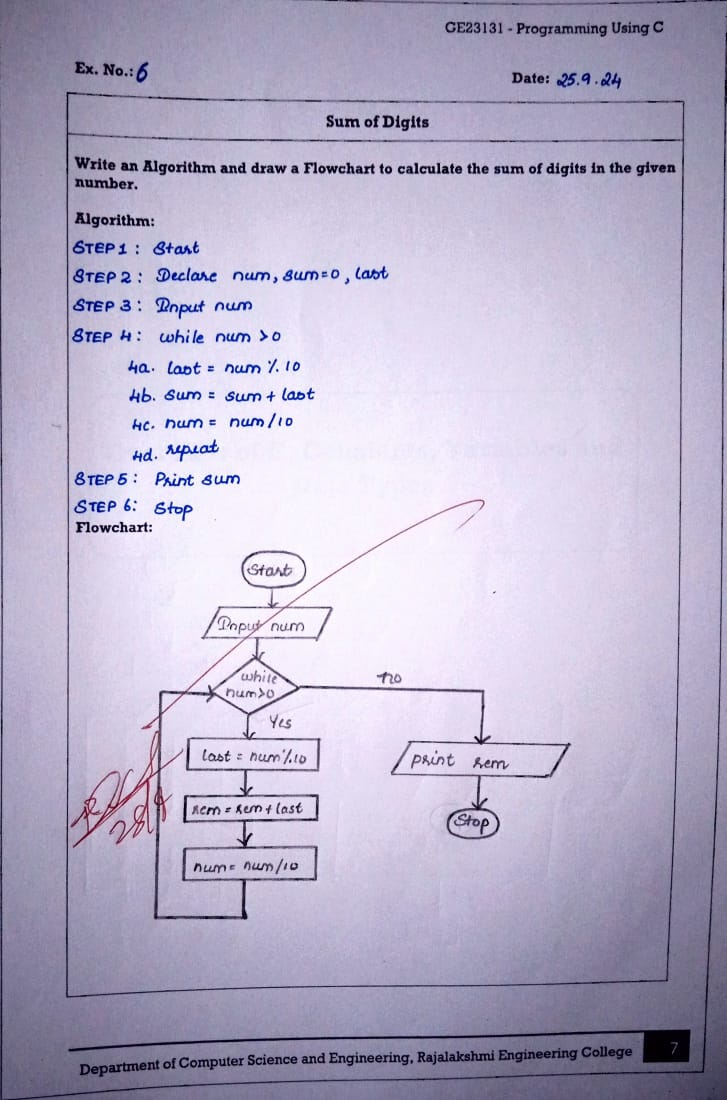 GE23131 - Programming Using C
Ex. No.: 6
Date: 25.9.24
Sum of Digits
Write an Algorithm and draw a Flowchart to calculate the sum of digits in the given
number.
Algorithm:
STEP 1 : Start
STEP 2 : Declare num, sum=0, last
STEP 3 : Input num
STEP 4 : while num >0
4a. last = num % 10
4b. sum = sum + last
4c. num = num/10
4d. repeat
STEP 5 : Print sum
STEP 6: Stop
Flowchart:
Start
Input num
while
num>0
no
Yes
last = num%10
print rem
rem = rem + last
Stop
num= num/10
Department of Computer Science and Engineering, Rajalakshmi Engineering College
7